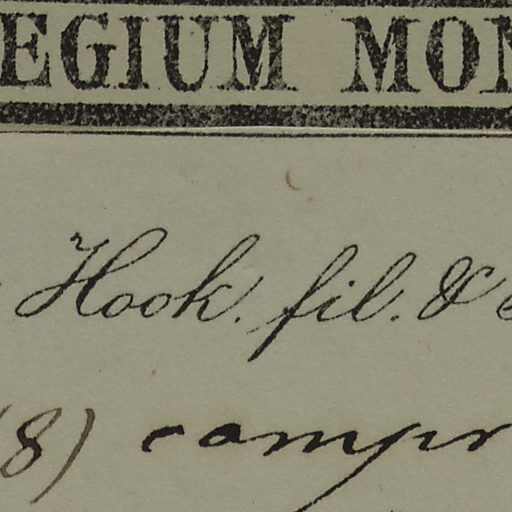 EGIUM MON
Hook. fil. &
(8) compr